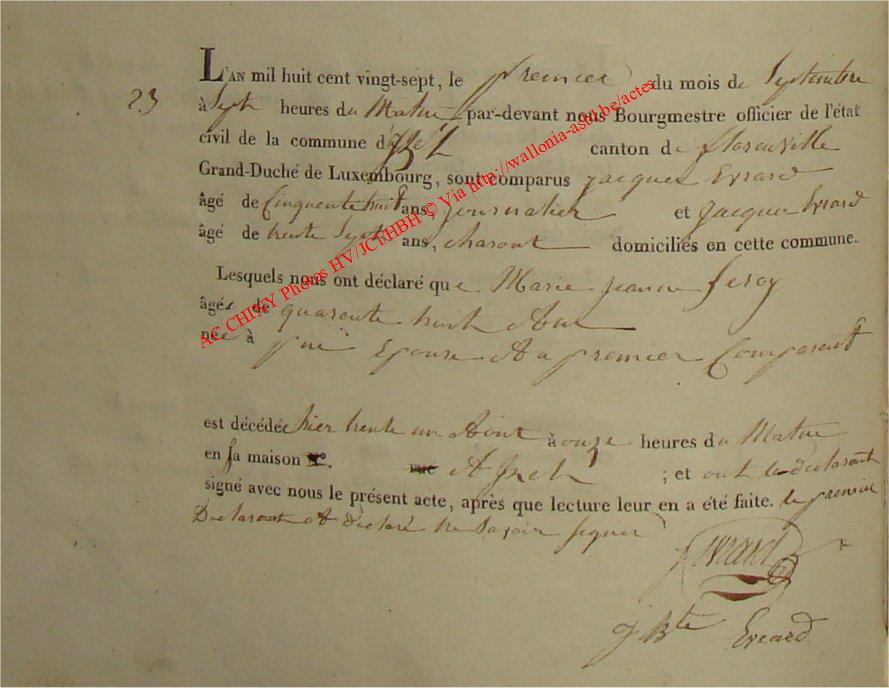 L'AN mil huit cent vingt-sept, le premier du mois de Septembre
23
à Sept heures du Matin par-devant nous Bourgmestre officier de l'état
civil de la commune d' canton de florenville
Grand-Duché de Luxembourg, sont comparus jacques Evrard
âgé de Cinquente huit ans, journalier et jacques Evrard
âgé de trente Sept ans, charon domiciliés en cette commune.
Lesquels nous ont déclaré que Marie jeanne leroy
âgée de quarente huit Ans
née à pin Epouse Au premier Comparant
est décédée hier trente un Aout à onze heures du Matin
en sa maison N°. rue A ; et ont le declarant
signé avec nous le présent acte, après que lecture leur en a été faite. le premier
Declarant At déclaré ne Savoir signer
j Evrard
j Bte Evrard
AC CHINY Photos HV/JCI/HBH © Via http://wallonia-asbl.be/actes